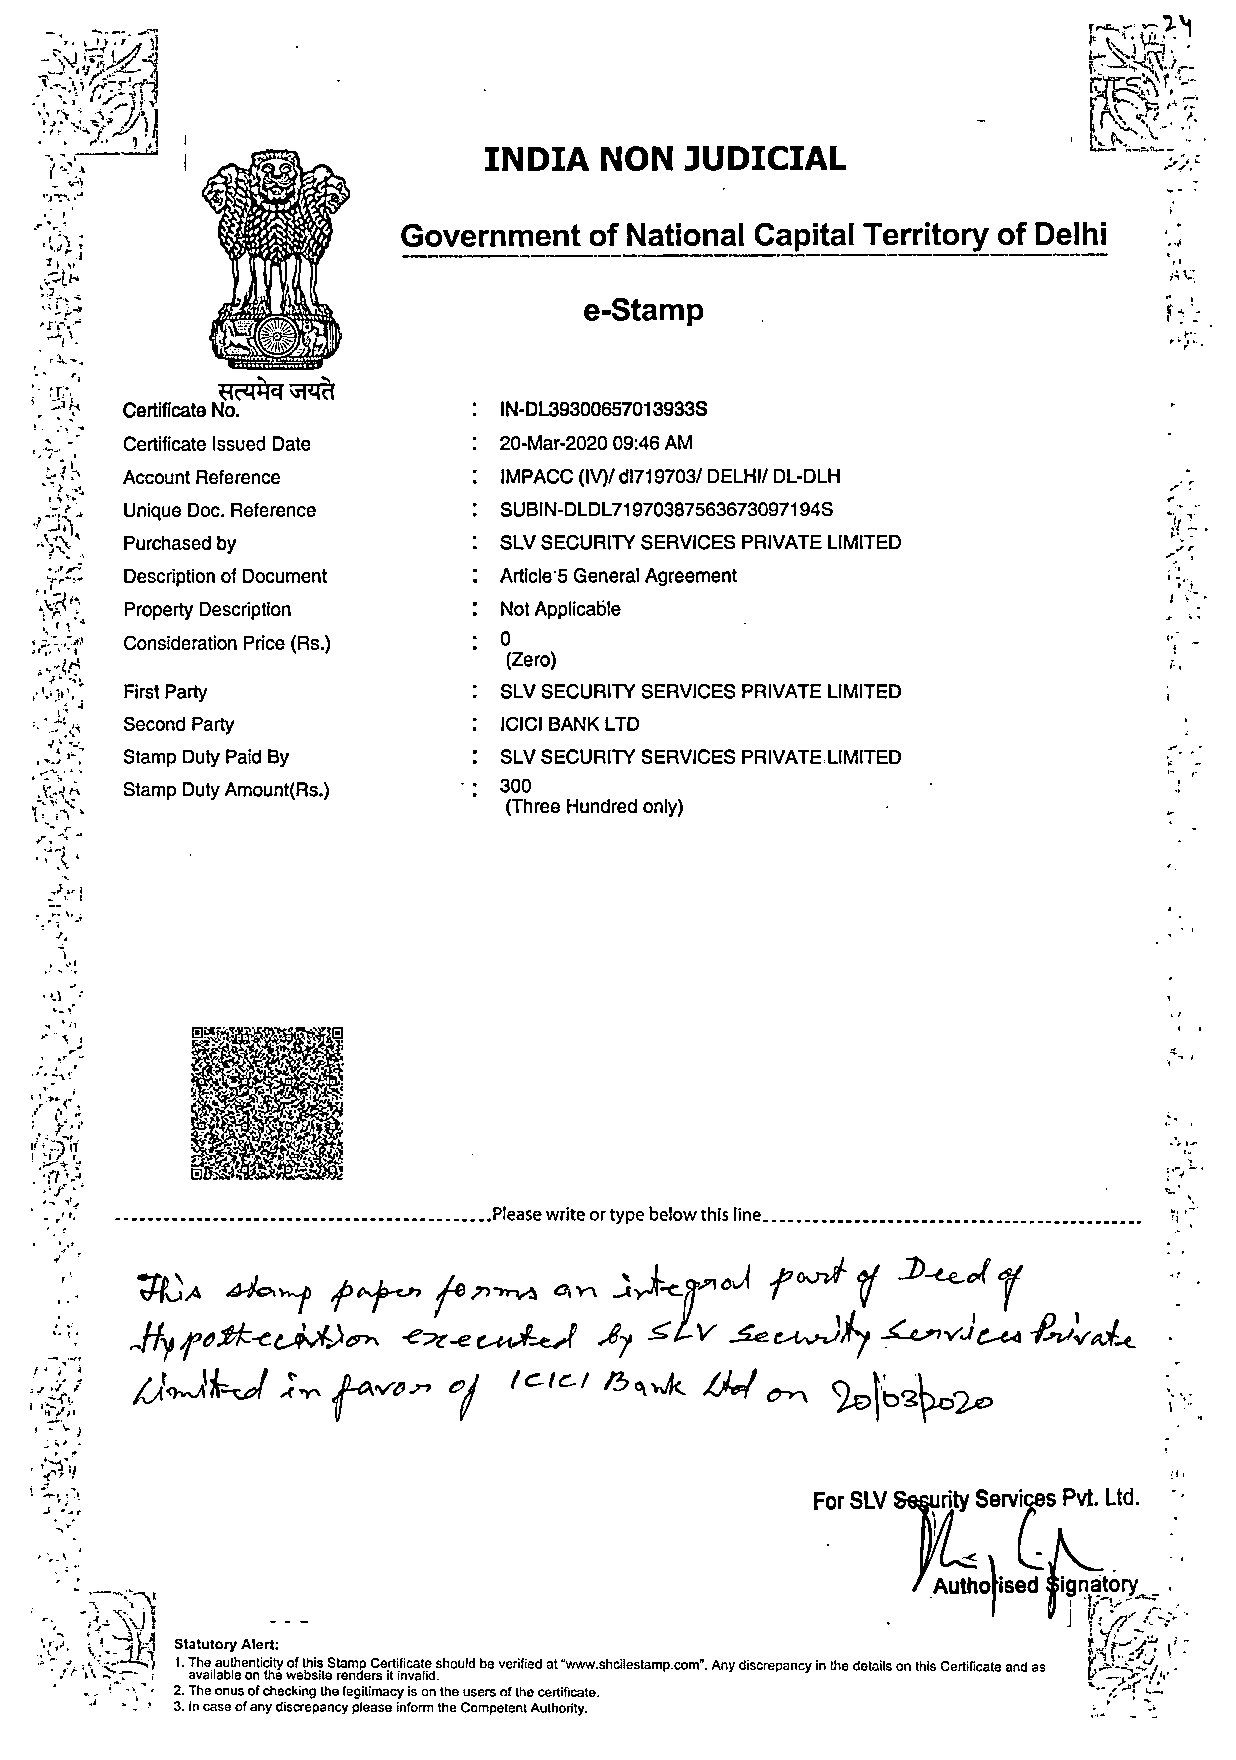 24
INDIA NON JUDICIAL
Government of National Capital Territory of Delhi
e-Stamp
सत्यमेव जयते
Certificate No. : IN-DL39300657013933S
Certificate Issued Date : 20-Mar-2020 09:46 AM
Account Reference : IMPACC (IV)/ dl719703/ DELHI/ DL-DLH
Unique Doc. Reference : SUBIN-DLDL71970387563673097194S
Purchased by : SLV SECURITY SERVICES PRIVATE LIMITED
Description of Document : Article 5 General Agreement
Property Description : Not Applicable
Consideration Price (Rs.) : 0
(Zero)
First Party : SLV SECURITY SERVICES PRIVATE LIMITED
Second Party : ICICI BANK LTD
Stamp Duty Paid By : SLV SECURITY SERVICES PRIVATE LIMITED
Stamp Duty Amount(Rs.) : 300
(Three Hundred only)
Please write or type below this line
This stamp paper forms an integral part of Deed of
Hypothecation executed by SLV Security Services Private
Limited in favor of ICICI Bank Ltd on 20/03/2020
For SLV Security Services Pvt. Ltd.
Authorised Signatory
Statutory Alert:
1. The authenticity of this Stamp Certificate should be verified at "www.shcilestamp.com". Any discrepancy in the details on this Certificate and as
available on the website renders it invalid.
2. The onus of checking the legitimacy is on the users of the certificate.
3. In case of any discrepancy please inform the Competent Authority.